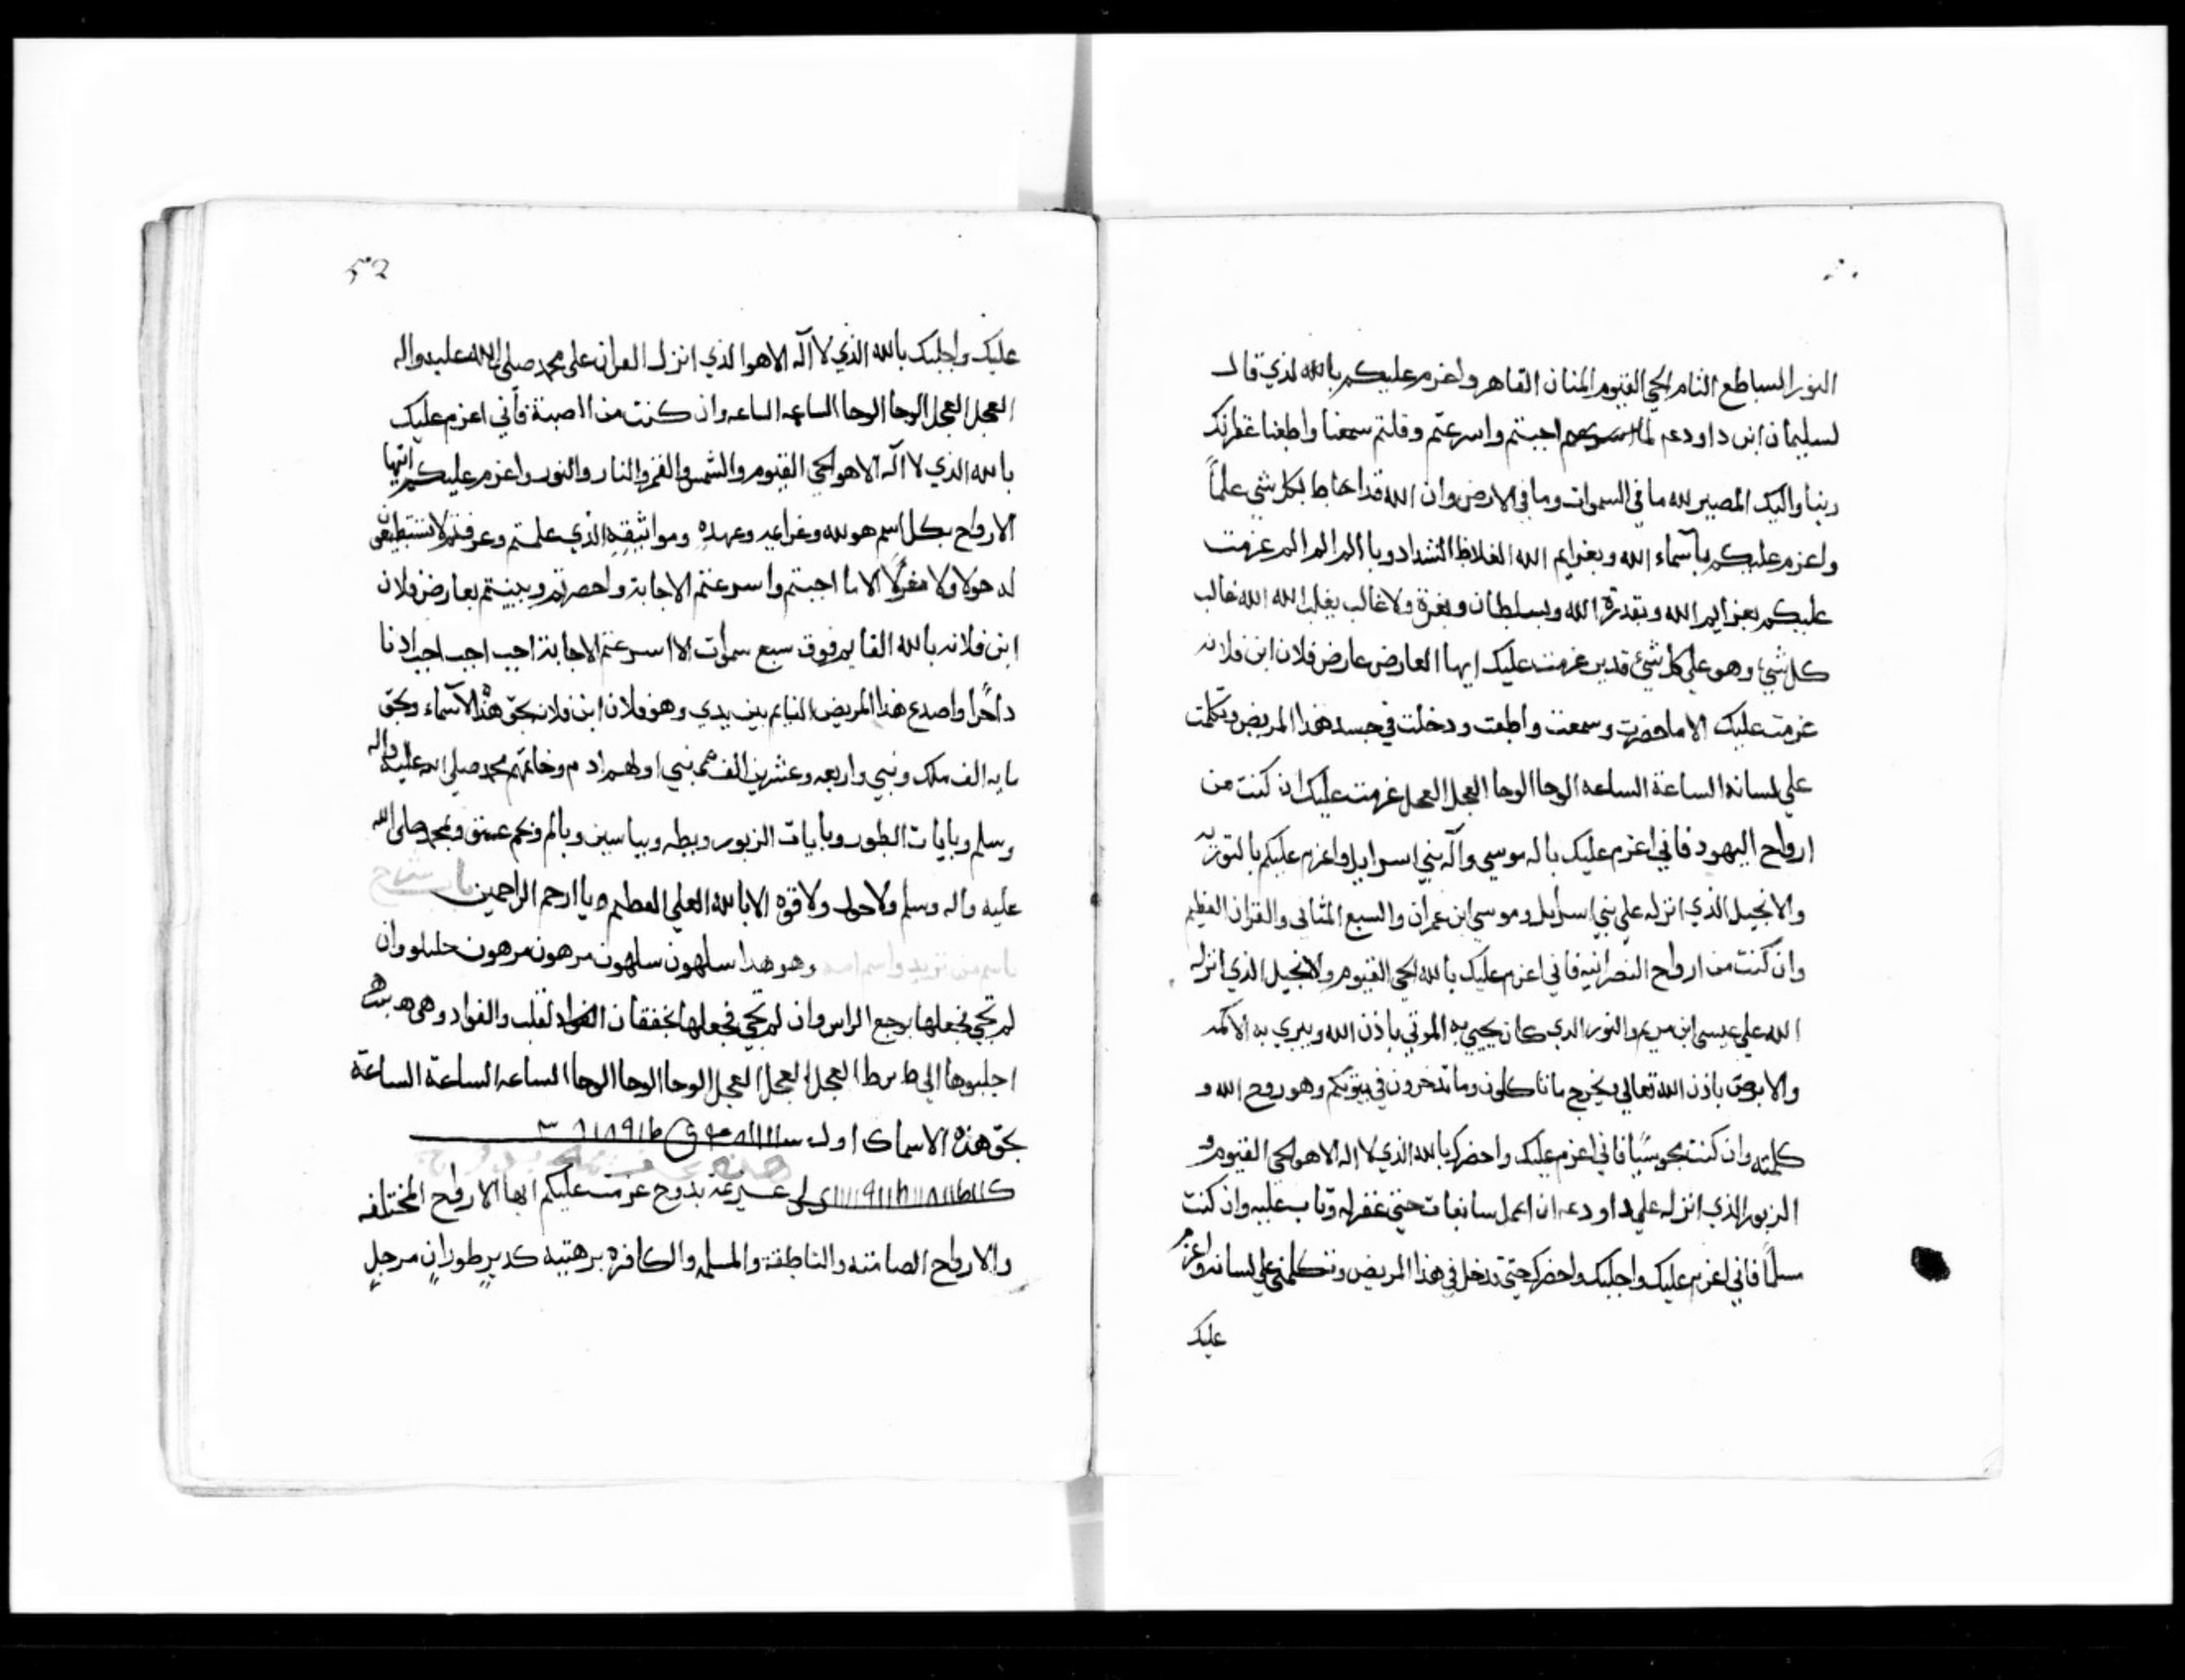 النور الساطع التام الحي القيوم المنان القاهر واعزم عليكم بالله لذي قال
لسليمان ابن داود عم لما اجبتم واسرعتم وقلتم سمعنا واطعنا غفرانك
ربنا واليك المصير لله ما في السموات وما في الارض وان الله قد احاط بكل شي علماً
واعزم عليكم باسماء الله وبعزايم الله الغلاظ الشداد وبا الم الم الم عزمت
عليكم بعزايم الله وبقدرة الله وبسلطان وبعزة ولا غالب يغلب الله الله غالب
كل شيء وهو علي كل شيء قدير عزمت عليك ايها العارض عارض فلان ابن فلانه
عزمت عليك الا ما حضرت وسمعت واطعت ودخلت في جسد هذا المريض وتكلمت
علي لسانه الساعة الساعه الوحا الوحا العجل العجل عزمت عليك ان كنت من
ارواح اليهود فاني اعزم عليك باله موسي واله بني اسرايل واعزم عليكم بالتوريه
والانجيل الذي انزله علي بني اسرايل وموسي ابن عمران والسبع المثاني والقران العظيم
وان كنت من ارواح النصرانيه فاني اعزم عليك بالله الحي القيوم ولانجيل الذي انزله
الله علي عيسى ابن مريم والنور الذي كان يحيي به الموتي باذن الله ويبري به الاكمه
والابرص باذن الله تعالي يخرج ما تاكلون وما تدخرون في بيوتكم وهو روح الله و
كلمته وان كنت مجوسيًا فاني اعزم عليك واحضرك بالله الذي لا اله الا هو الحي القيوم و
الزبور الذي انزله علي داود عم ان اعمل سابغات حتي غفر له وتاب عليه وان كنت
مسلماً فاني اعزم عليك واجلبك واحضرك حتي تدخل في هذا المريض وتتكلم علي لسانه واعزم
عليك
٥٢
عليك واجلبك بالله الذي لا اله الا هو الذي انزل القران على محمد صلى الله عليه واله
العجل العجل الوحا الوحا الساعه الساعه وان كنت من الاصبنة فأني اعزم عليك
بالله الذي لا اله الا هو الحي القيوم والشمس والقمر والنار والنور واعزم عليكم ايتها
الارواح بكل اسم هو لله وعزايمه وعهده ومواثيقه الذي علمتم وعرفتم لا تستطيعون
له حولا ولا مفرًا الا ما اجبتم واسرعتم الاجابة واحضرتم وجيتم بعارض فلان
ابن فلانه بالله القايم فوق سبع سموات الا اسرعتم الاجابة اجب اجب اجب ادنا
داحرًا واصدع هذا المريض النايم بين يدي وهو فلان ابن فلان بحق هذه الاسماء وبحق
مايه الف ملك ونبي واربعه وعشرين الف نبي اولهم ادم وخاتمهم محمد صلى الله عليه واله
وسلم وبايات الطور وبايات الزبور وبطه وبياسين وبالم وبحم عسق وبمحمد صلى الله
عليه واله وسلم ولا حول ولا قوه الا بالله العلي العظيم ويا ارحم الراحمين
وهو هذا سلهون سلهون مرهون مرهون وان
لم تجي فجعلها بوجع الراس وان لم تجي فجعلها بخفقان القلب والفواد وهي
اجلبوها الي العجل العجل العجل الوحا الوحا الوحا الساعه الساعة الساعة
بحق هذه الاسماء اول
بدوح عزمت عليكم ايها الارواح المختلفه
والارواح الصامته والناطقة والمسلمه والكافره برهتيه كدير طوران مرجل